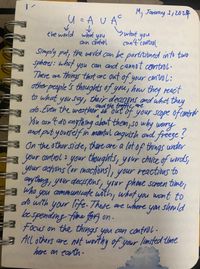 1-
M, January 1, 2024
U = A U Aᶜ
the world what you what you
can control can't control.
Simply put, the world can be partitioned into two
spheres: what you can and cannot control.
There are things that are out of your control:
other people's thoughts of you, how they react
to what you say, their decisions and what they
do. Even the weather are out of your scope of control.
You can't do anything about them, so why worry
and put yourself in mental anguish and freeze?
On the other side, there are a lot of things under
your control: your thoughts, your choice of words,
your actions (or inactions), your reactions to
anything, your decisions, your phone screen time,
who you communicate with, what you want to
do with your life. These are where you should
be spending time on.
Focus on the things you can control.
All others are not worthy of your limited time
here on earth.